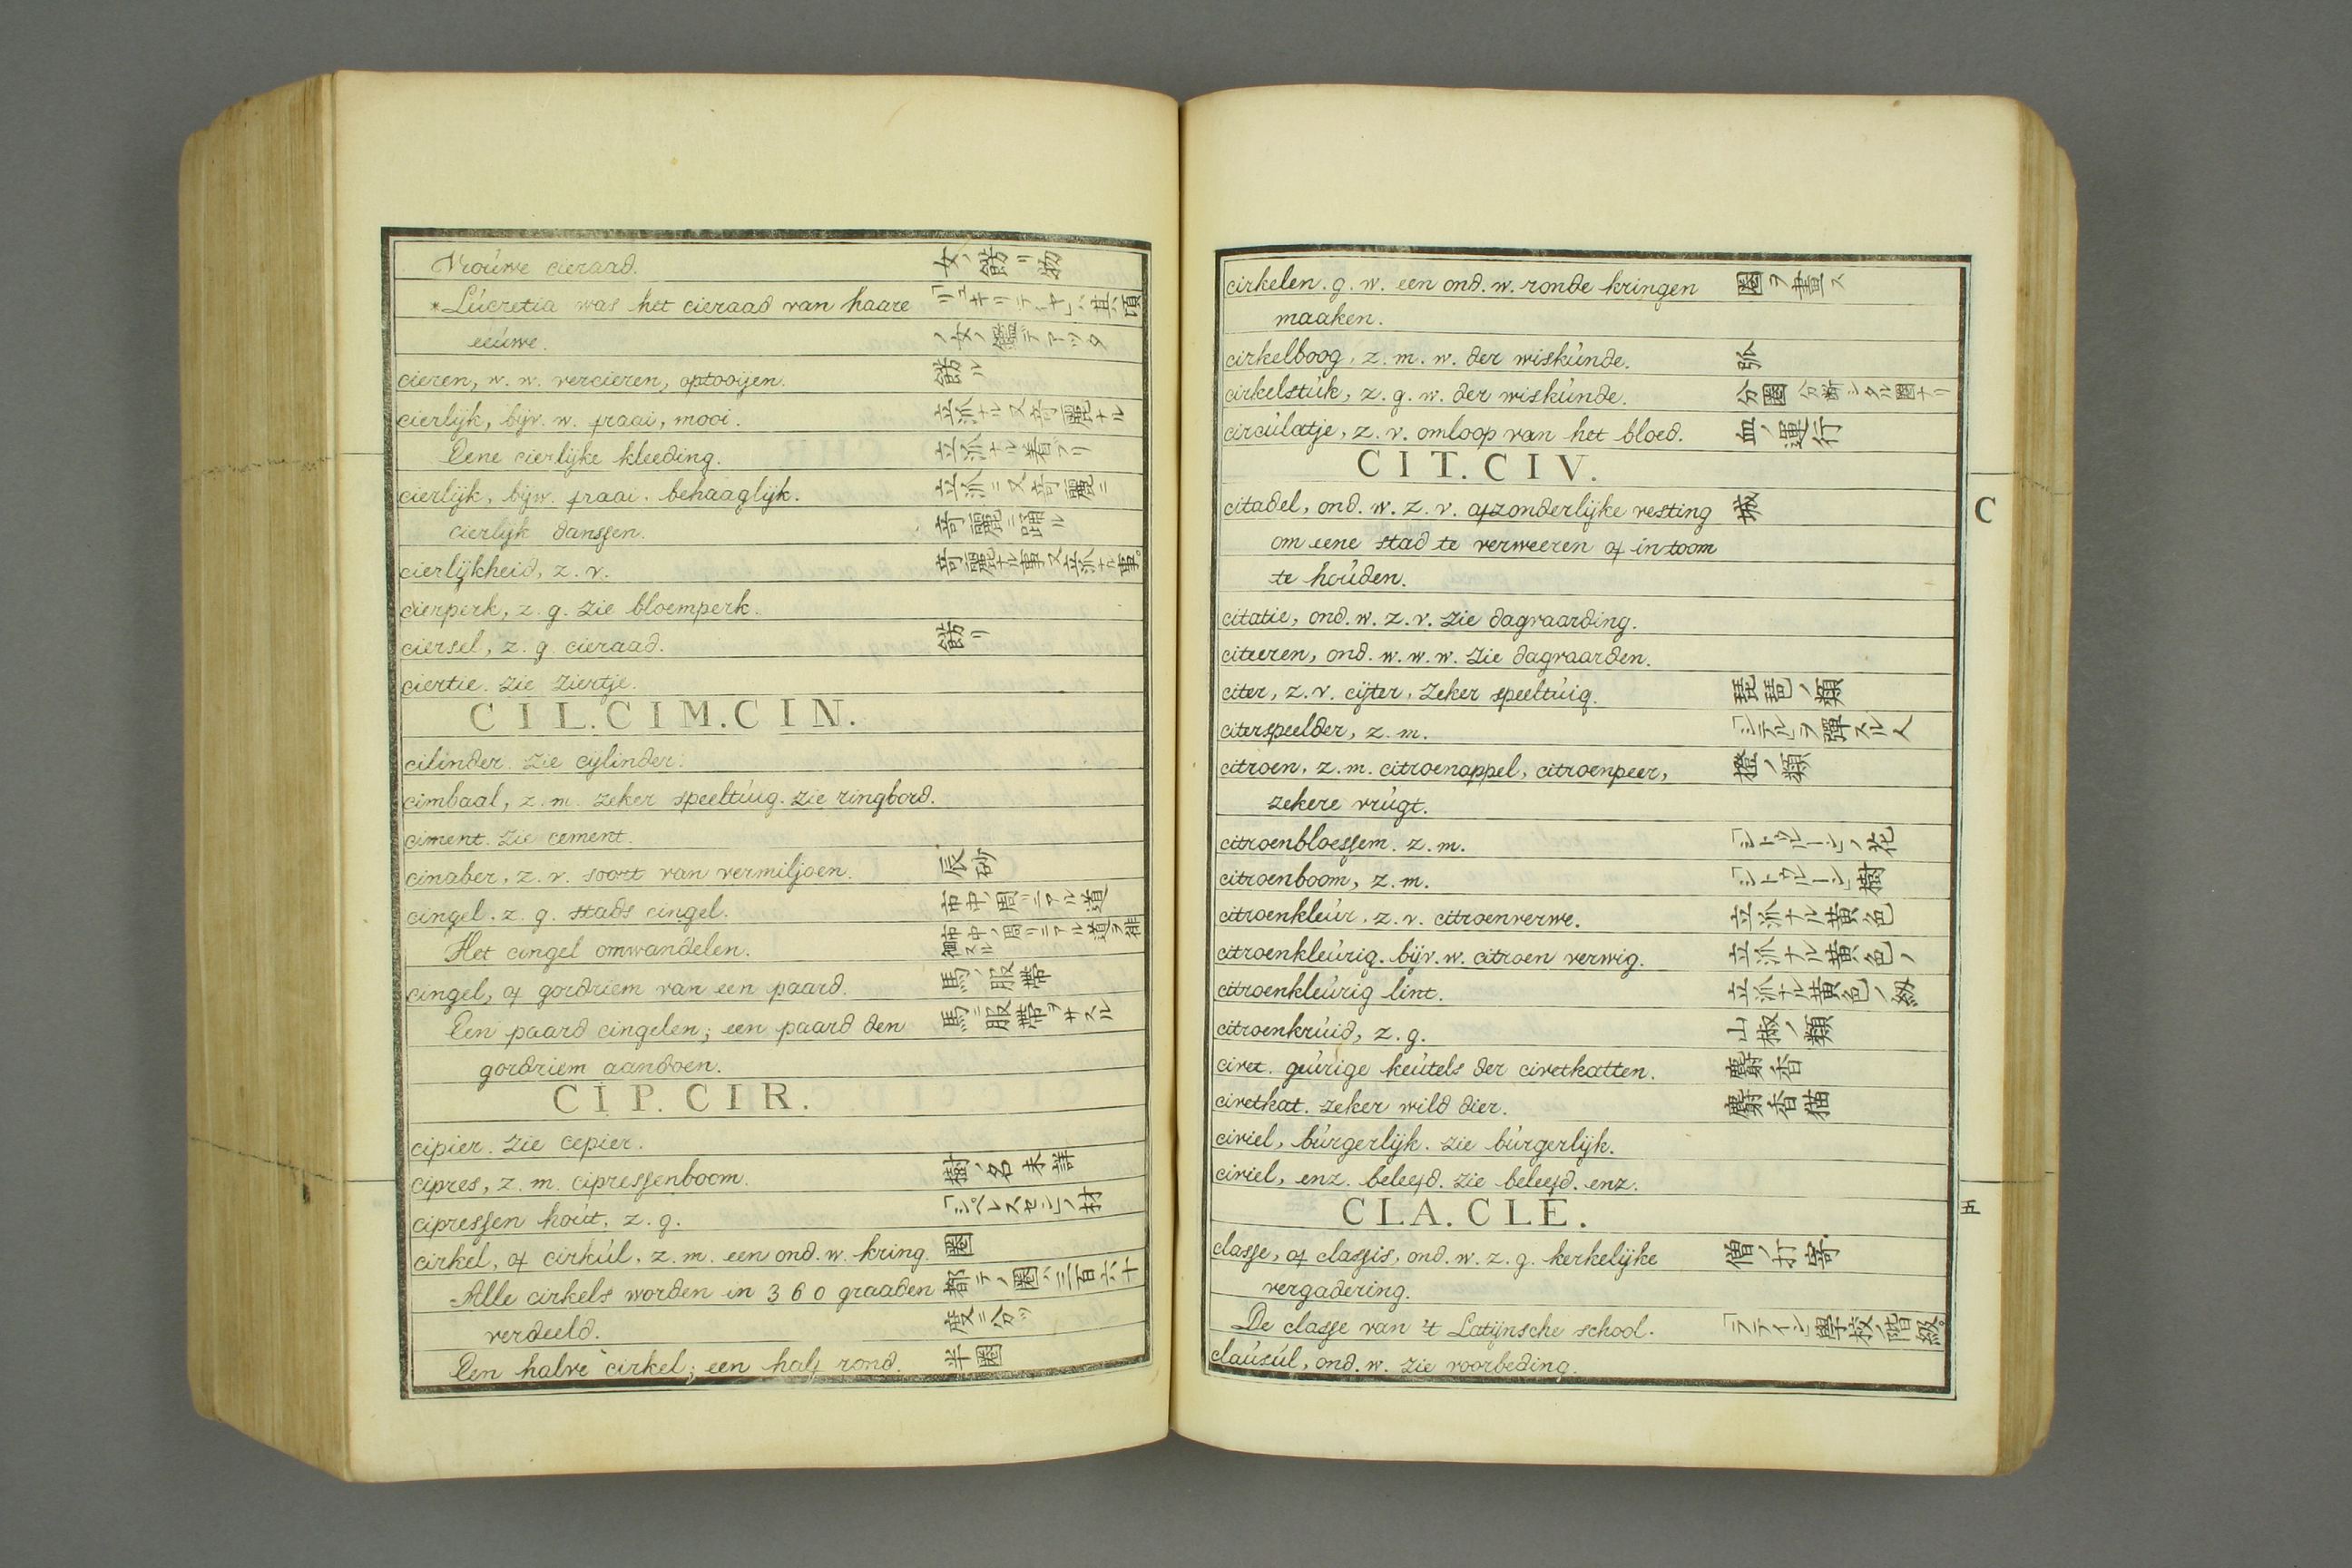 Vrouwe cieraad. 女ノ餝リ物
*Lucretia was het cieraad van haare 「リュキリテヤ」ハ其頃
eeuwe. ノ女ノ鑑デアツタ
cieren, w. w. vercieren, optooijen. 餝ル
cierlijk, bijv. w. fraai, mooi. 立派ナル又奇麗ナル
Eene cierlijke kleeding. 立派ナル着フリ
cierlijk, bijw. fraai. behaaglijk. 立派ニ又奇麗ニ
cierlijk danssen. 奇麗ニ踊ル
cierlijkheid, z. v. 奇麗ナル事又立派ナル事
cierperk, z. g. zie bloemperk.
ciersel, z. g. cieraad. 餝リ
ciertie. zie ziertje.
CIL. CIM. CIN.
cilinder. zie cijlinder.
cimbaal, z. m. zeker speeltuig. zie ringbord.
ciment. zie cement.
cinaber, z. v. soort van vermiljoen. 辰砂
cingel. z. g. stads cingel. 市中ノ周リニアル道
Het cingel omwandelen. 市中ノ周リニアル道ヲ徘徊スル
cingel, of gordriem van een paard. 馬ノ服帯
Een paard cingelen; een paard den 馬ニ服帯ヲサスル
gordriem aandoen.
CIP. CIR.
cipier. zie cepier.
cipres, z. m. cipressenboom. 樹ノ名未詳
cipressen hout, z. g. 「シペレスセン」ノ材
cirkel, of cirkul, z. m. een ond. w. kring. 圏
Alle cirkels worden in 360 graaden 都テノ圏ハ三百六十
verdeeld. 度ニ分ツ
Een halve cirkel; een half rond. 半圏
cirkelen. g. w. een ond. w. ronde kringen 圏ヲ畫ス
maaken.
cirkelboog, z. m. w. der wiskunde. 弧
cirkelstuk, z. g. w. der wiskunde. 分圏 分断シタル圏ナリ
circulatje, z. v. omloop van het bloed. 血ノ運行
CIT. CIV.
citadel, ond. w. z. v. afzonderlijke vesting 城
om eene stad te verweeren of in toom
te houden.
citatie, ond. w. z. v. zie dagvaarding.
citeeren, ond. w. w. w. zie dagvaarden.
citer, z. v. cijter, zeker speeltuig. 琵琶ノ類
citerspeelder, z. m. 「シテル」ヲ彈スル人
citroen, z. m. citroenappel, citroenpeer, 橙ノ類
zekere vrugt.
citroenbloessem. z. m. 「シトウルーン」ノ花
citroenboom, z. m. 「シトウルーン」樹
citroenkleur. z. v. citroenverwe. 立派ナル黄色
citroenkleurig. bijv. w. citroen verwig. 立派ナル黄色ノ
citroenkleurig lint. 立派ナル黄色ノ
citroenkruid, z. g. 山椒ノ類
civet. geurige keutels der civetkatten. 麝香
civetkat. zeker wild dier. 麝香猫
civiel, burgerlijk. zie burgerlijk.
civiel, enz. beleefd. zie beleefd. enz.
CLA. CLE.
classe, of classis, ond. w. z. g. kerkelijke 僧ノ打寄
vergadering.
De classe van 't Latijnsche school. 「ラテイン」學校ノ階級
clausul, ond. w. zie voorbeding.
C
五